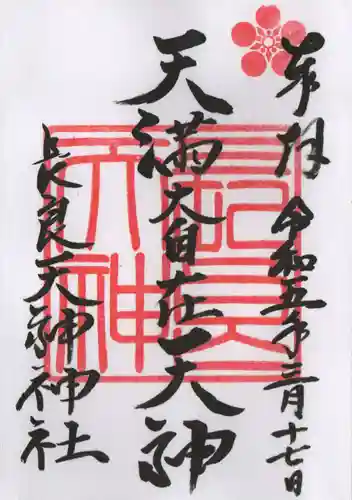 奉拝
令和五年三月十七日
天満大自在天神
長良天神神社